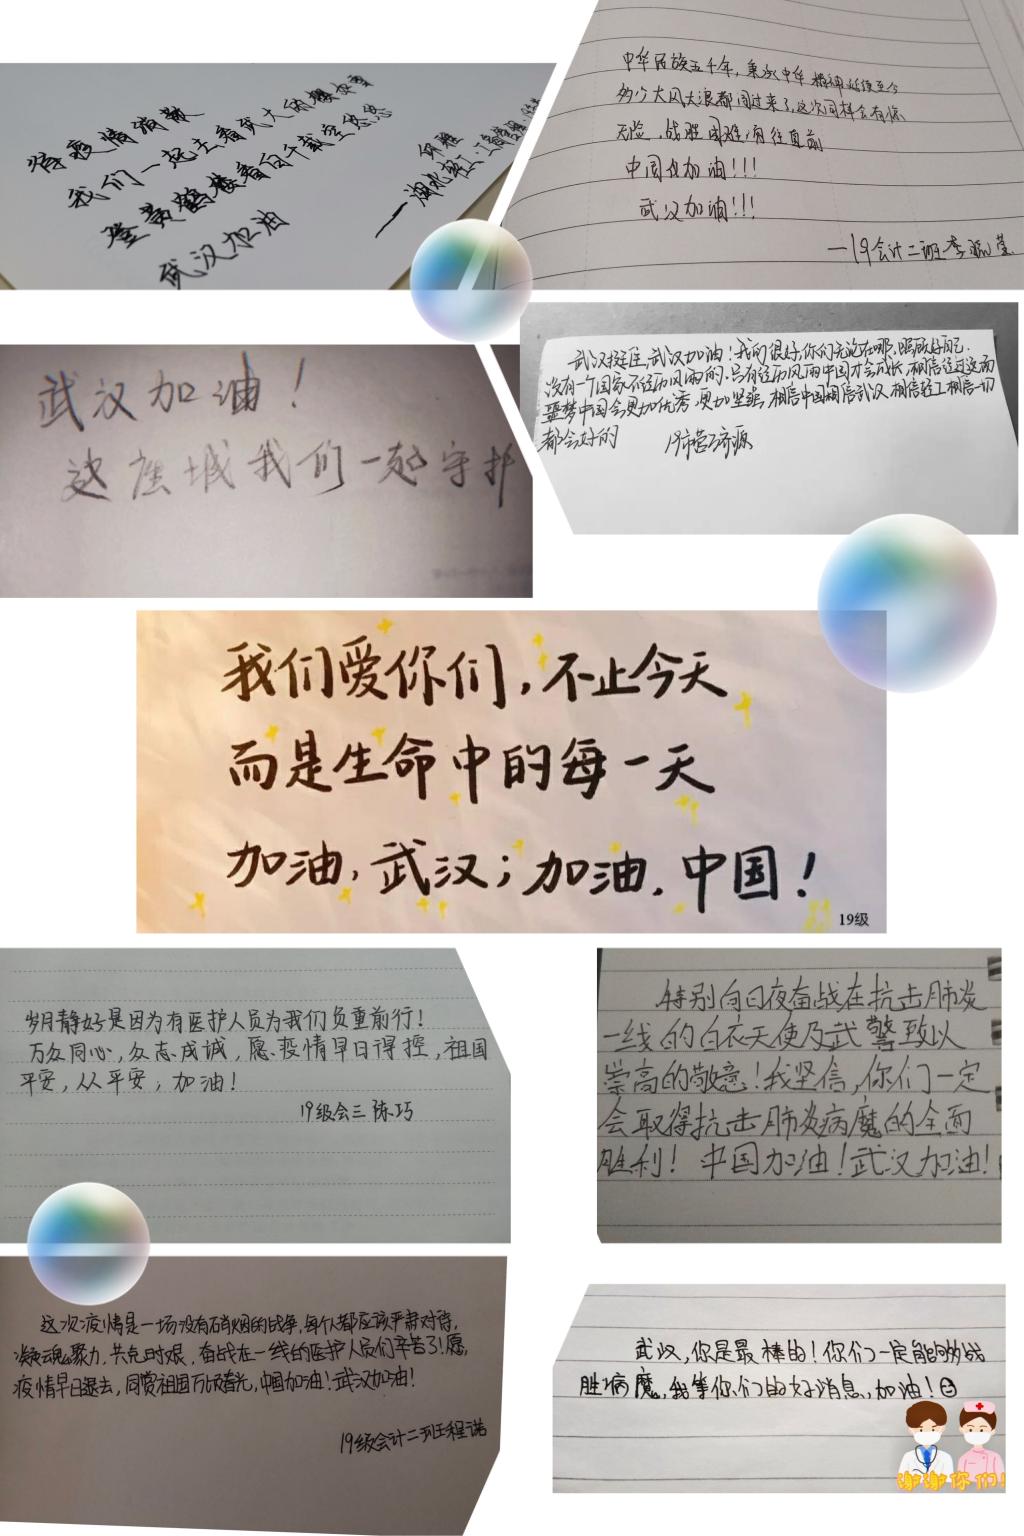 待疫情消散
我们一起去看武大的樱花
登黄鹤楼看白云千载空悠悠
武汉加油
中华民族五千年，秉承中华精神延续至今
多少大风大浪都闯过来了，这次同样会有惊
无险，战胜困难，勇往直前
中国化加油!!!
武汉加油!!!
—19会计二班李
武汉加油！
这座城我们一起守护
武汉挺住，武汉加油！我们很好，你们无论在哪，照顾好自己.
没有一个国家不经历风雨的.只有经历风雨中国才会成长，相信经过这场
噩梦中国会更加优秀，更加坚强，相信中国相信武汉，相信 相信一切
都会好的 19市营 济源
我们爱你们，不止今天
而是生命中的每一天
加油，武汉；加油，中国！
19级
岁月静好是因为有医护人员为我们负重前行！
万众同心，众志成诚，愿疫情早日得控，祖国
平安，从平安，加油！
19级会三 陈巧
特别向日夜奋战在抗击肺炎
一线的白衣天使及武警致以
崇高的敬意！我坚信，你们一定
会取得抗击肺炎病魔的全面
胜利！中国加油！武汉加油！
这次疫情是一场没有硝烟的战争，每个人都应该严肃对待，
凝魂聚力，共克时艰，奋战在一线的医护人员们辛苦了！愿，
疫情早日退去，同赏祖国万顷春光，中国加油！武汉加油！
19级会计二班程诺
武汉，你是最棒的！你们一定能够战
胜病魔，我等你们的好消息，加油！
谢谢你们！